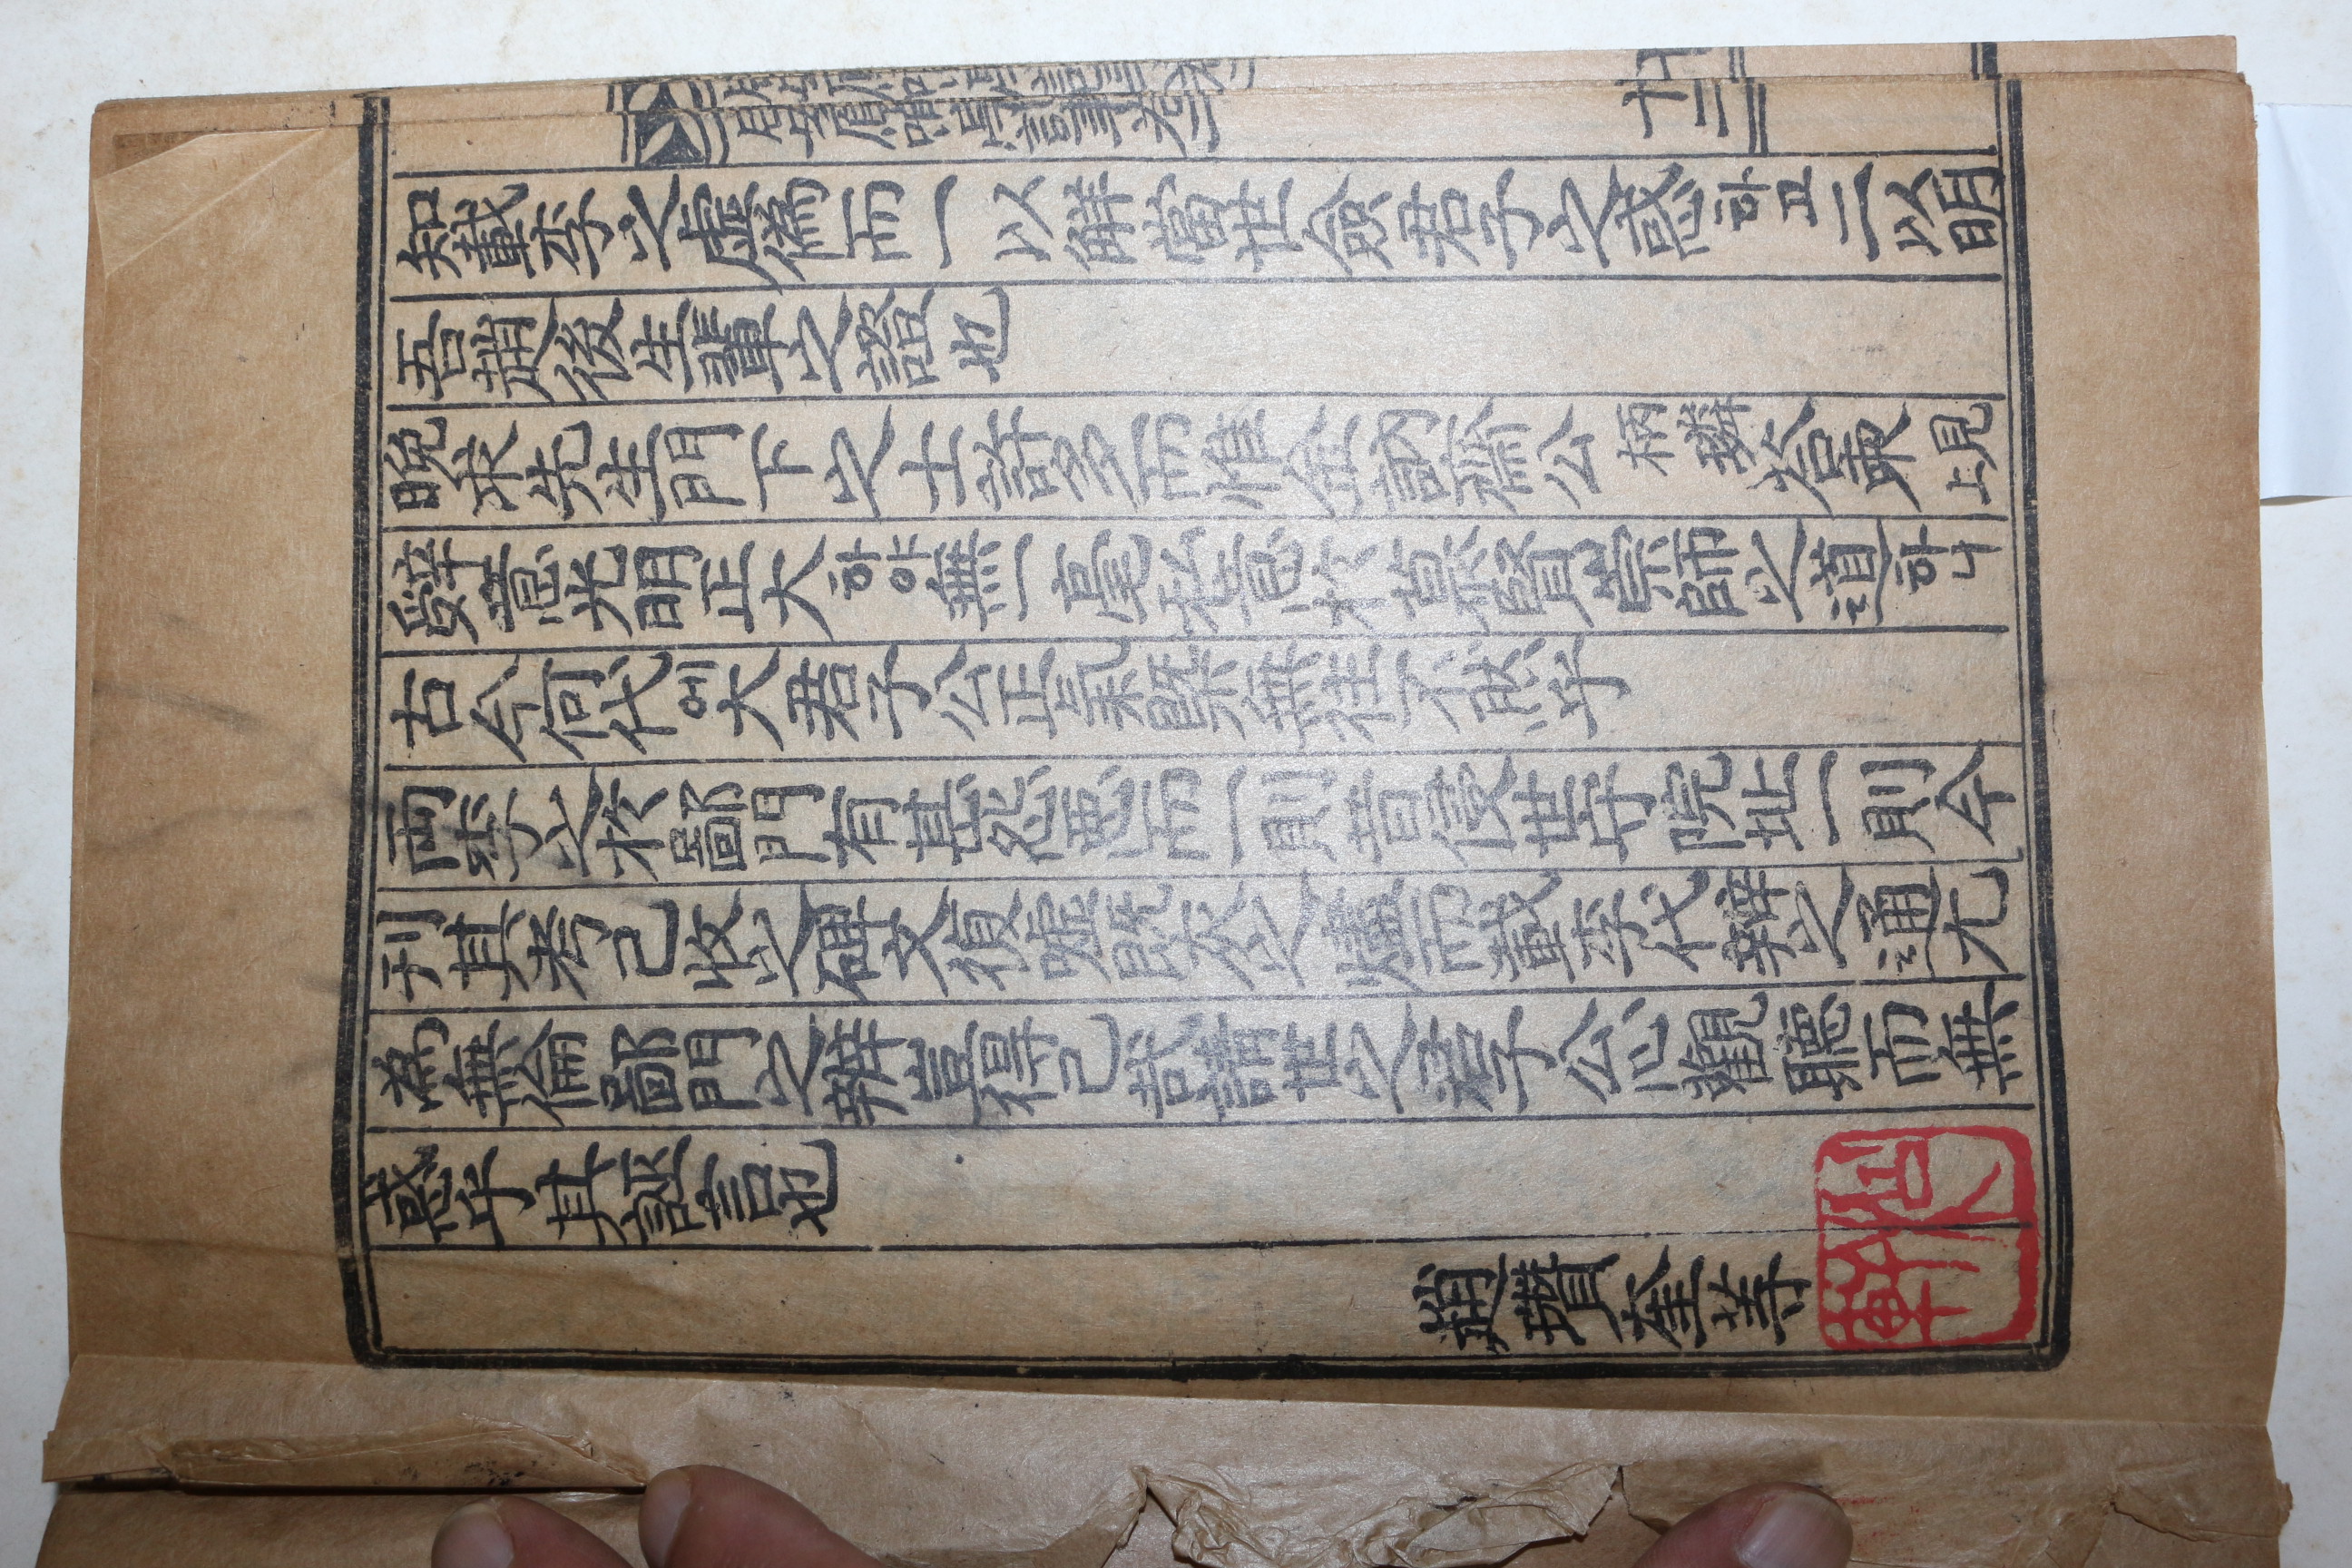 知載李之虛僞而一以觧當世僉君子之惑하고二以明
吾趙後生輩之證也
晩求先生門下之士許多而惟金訥齋公柄璘荅柬上見
辤意光明正大하야無一毫私意於慕賢崇師之道하니
古今何代에大君子公正氣槩無往不然乎
両李之於鄙門有甚怨惡而一則昔侵世守院址一則今
刊其考己收之碑文復噓既灰之燼而載李代辨之通尤
為無倫鄙門之辨豈得已哉講世之君子公心觀聽而無
惑乎其誣言也
趙瓚奎等
卷二
十二
軒